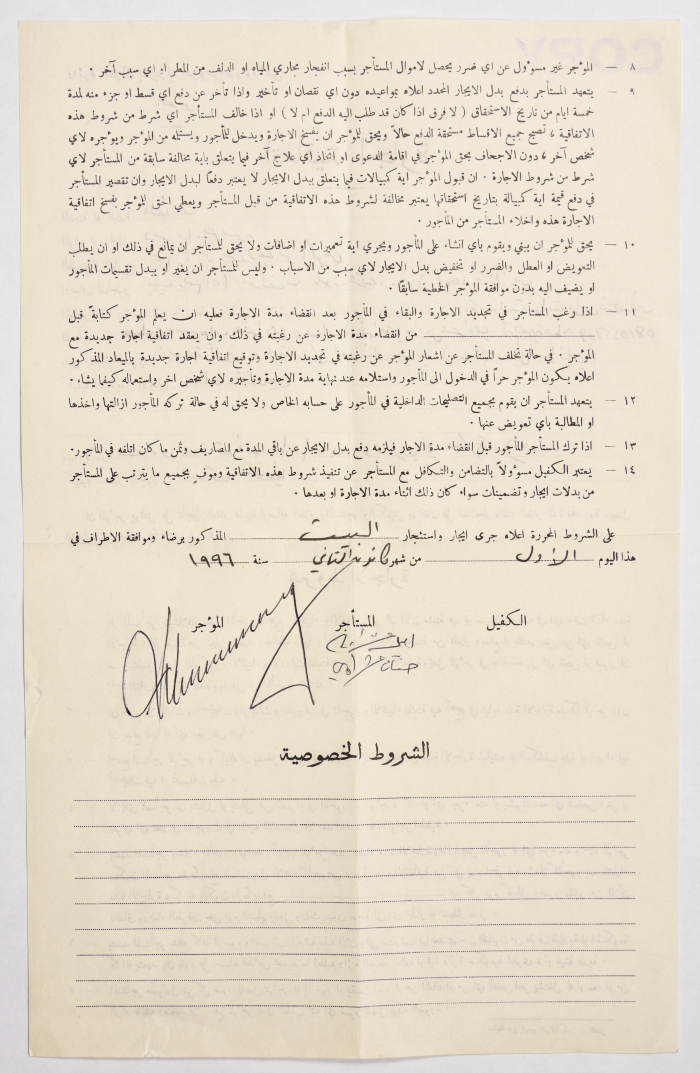 ٨ — المؤجر غير مسؤول عن اي ضرر يحصل لاموال المستأجر بسبب انفجار مجاري المياه او الدلف من المطر او اي سبب آخر ٠
٩ — يتعهد المستأجر بدفع بدل الايجار المحدد اعلاه بمواعيده دون اي نقصان او تأخير واذا تأخر عن دفع اي قسط او جزء منه لمدة
خمسة ايام من تاريخ الاستحقاق ( لا فرق اذا كان قد طلب اليه الدفع ام لا ) او اذا خالف المستأجر اي شرط من شروط هذه
الاتفاقية ، تصبح جميع الاقساط مستحقة الدفع حالاً ويحق للمؤجر ان يفسخ الاجارة ويدخل للمأجور ويستلمه من المؤجر ويؤجره لاي
شخص آخر ، دون الاجحاف بحق المؤجر في اقامة الدعوى او اتخاذ اي علاج آخر فيما يتعلق باية مخالفة سابقة من المستأجر لاي
شرط من شروط الاجارة ٠ ان قبول المؤجر اية كمبيالات فيما يتعلق ببدل الايجار لا يعتبر دفعًا لبدل الايجار وان تقصير المستأجر
في دفع قيمة اية كمبيالة بتاريخ استحقاقها يعتبر مخالفة لشروط هذه الاتفاقية من قبل المستأجر ويعطي الحق للمؤجر بفسخ اتفاقية
الاجارة هذه واخلاء المستأجر من المأجور ٠
١٠ — يحق للمؤجر ان يبني ويقوم باي انشاء على المأجور ويجري اية تعميرات او اضافات ولا يحق للمستأجر ان يمانع في ذلك او ان يطلب
التعويض او العطل والضرر او تخفيض بدل الايجار لاي سبب من الاسباب ٠ وليس للمستأجر ان يغير او يبدل تقسيمات المأجور
او يضيف اليه بدون موافقة المؤجر الخطية سابقًا ٠
١١ — اذا رغب المستأجر في تجديد الاجارة والبقاء في المأجور بعد انقضاء مدة الاجارة فعليه ان يعلم المؤجر كتابةً قبل
من انقضاء مدة الاجارة عن رغبته في ذلك وان يعقد اتفاقية اجارة جديدة مع
المؤجر ٠ في حالة تخلف المستأجر عن اشعار المؤجر عن رغبته في تجديد الاجارة وتوقيع اتفاقية اجارة جديدة بالميعاد المذكور
اعلاه يكون المؤجر حراً في الدخول الى المأجور واستلامه عند نهاية مدة الاجارة وتأجيره لاي شخص اخر واستعماله كيفما يشاء ٠
١٢ — يتعهد المستأجر ان يقوم بجميع التصليحات الداخلية في المأجور على حسابه الخاص ولا يحق له في حالة تركه المأجور ازالتها واخذها
او المطالبة باي تعويض عنها ٠
١٣ — اذا ترك المستأجر المأجور قبل انقضاء مدة الاجار فيلزمه دفع بدل الايجار عن باقي المدة مع المصاريف وثمن ما كان اتلفه في المأجور٠
١٤ — يعتبر الكفيل مسؤولاً بالتضامن والتكافل مع المستأجر عن تنفيذ شروط هذه الاتفاقية وموف بجميع ما يترتب على المستأجر
من بدلات ايجار وتضمينات سواء كان ذلك اثناء مدة الاجارة او بعدها ٠
على الشروط المحررة اعلاه جرى ايجار واستئجار البيت المذكور برضاء وموافقة الاطراف في
هذا اليوم الأول من شهر كانون الثاني سنة ١٩٩٦
الكفيل المستأجر المؤجر
الشروط الخصوصية